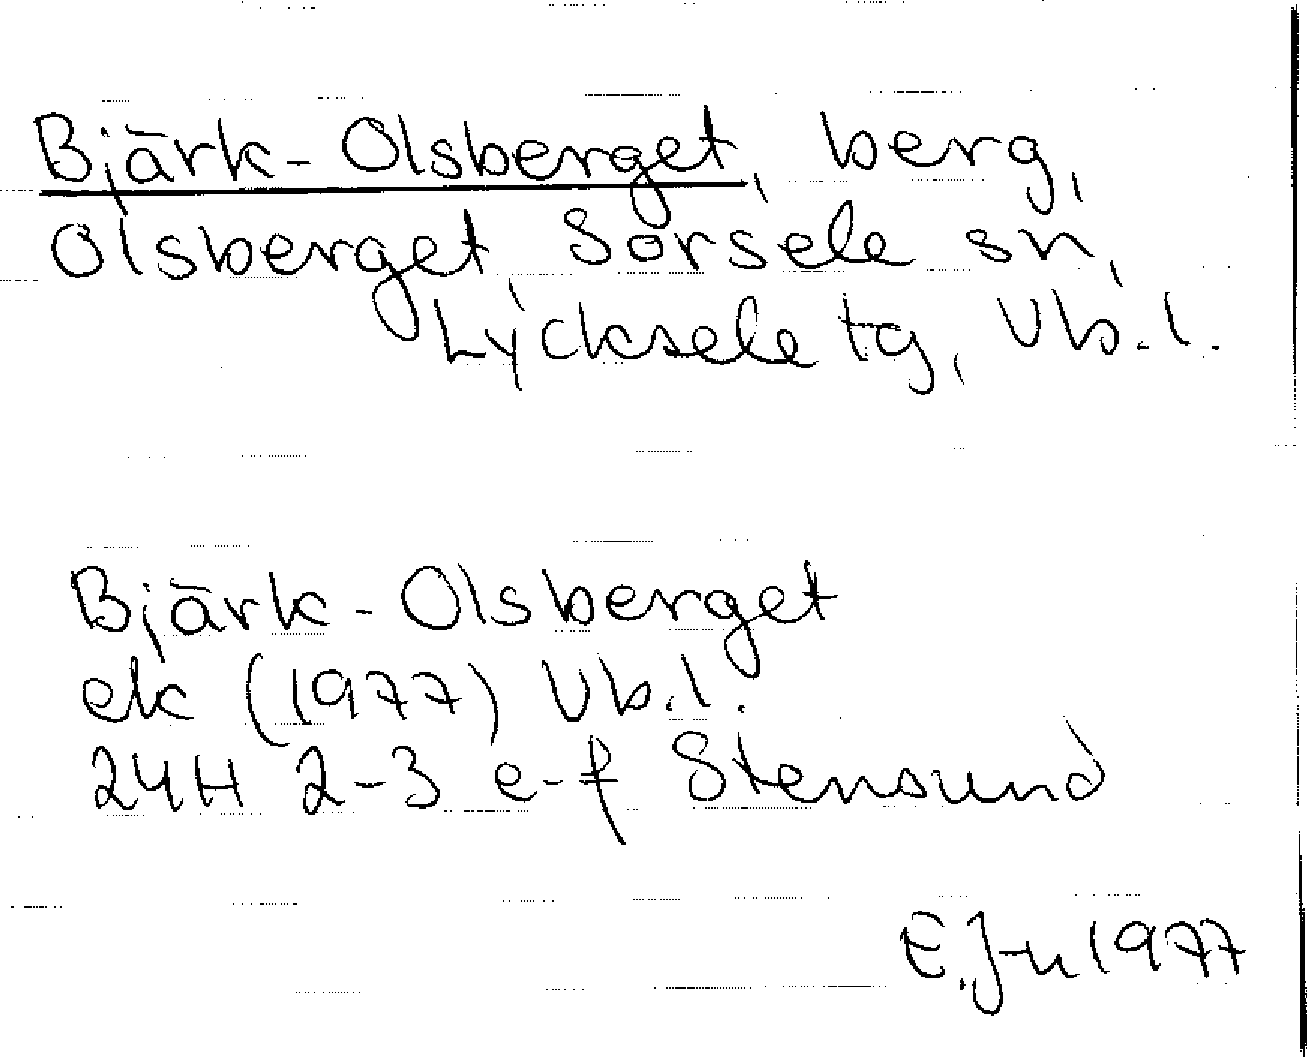 Bjärk-Olsberget, berg,
Olsberget Sorsele sn,
Lycksele tg, Vb.l.
Bjärk-Olsberget
ek (1977) Vb.l.
24H 2-3 e-f Stensund
E.J-n 1977